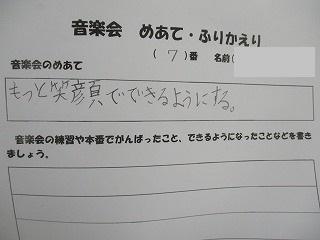 音楽会 めあて・ふりかえり
(7)番 名前(
音楽会のめあて
もっと笑顔でできるようにする。
音楽会の練習や本番でがんばったこと、できるようになったことなどを書き
ましょう。